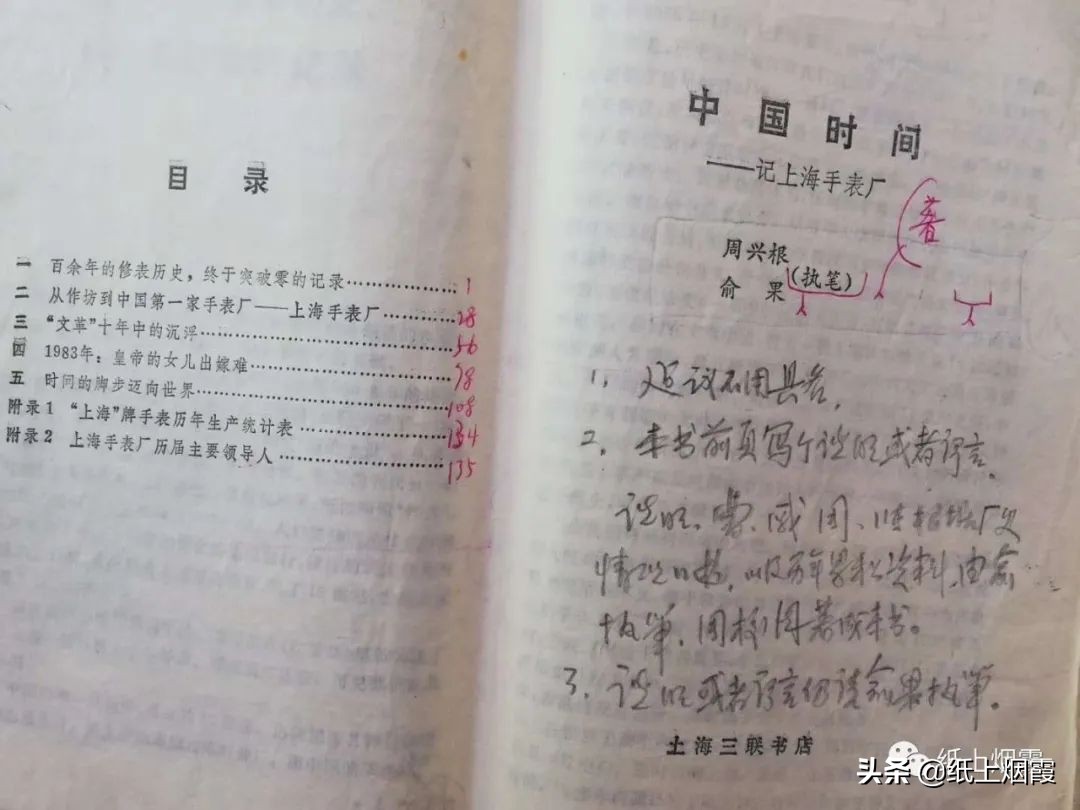 目 录
一 百余年的修表历史，终于突破零的记录……………1
二 从作坊到中国第一家手表厂——上海手表厂…………28
三 “文革”十年中的沉浮……………56
四 1983年：皇帝的女儿出嫁难……………98
五 时间的脚步迈向世界……………108
附录1 “上海”牌手表历年生产统计表……………134
附录2 上海手表厂历届主要领导人……………135
中 国 时 间
——记上海手表厂
著
周兴根
俞 果（执笔）
1、建议不用具名，
2、本书前页写个说明或者序言、
说明、周
情况，历年累积资料，由俞
执笔、周 著成本书。
3、说明或者序言仍请俞果执笔。
上海三联书店
纸上烟霞
头条 @纸上烟霞